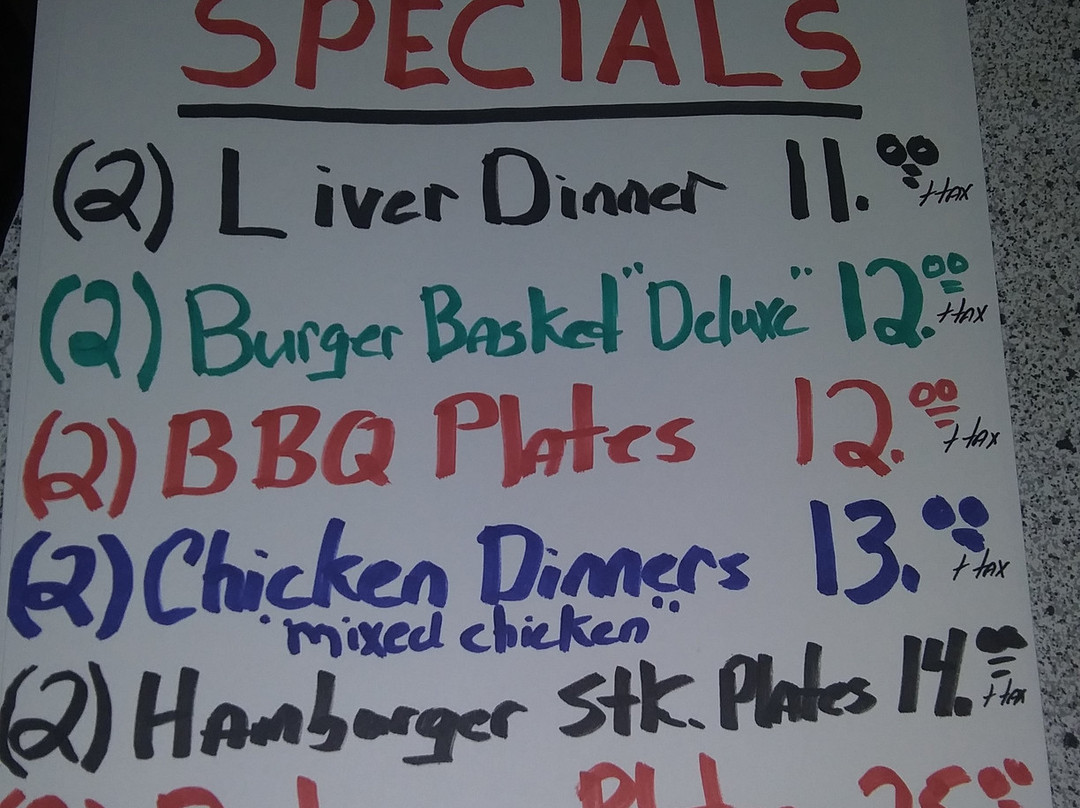 SPECIALS
(2) Liver Dinner 11.00 + tax
(2) Burger Basket "Deluxe" 12.00 + tax
(2) BBQ Plates 12.00 + tax
(2) Chicken Dinners 13.00 + tax
"mixed chicken"
(2) Hamburger Stk. Plates 14.00 + tax